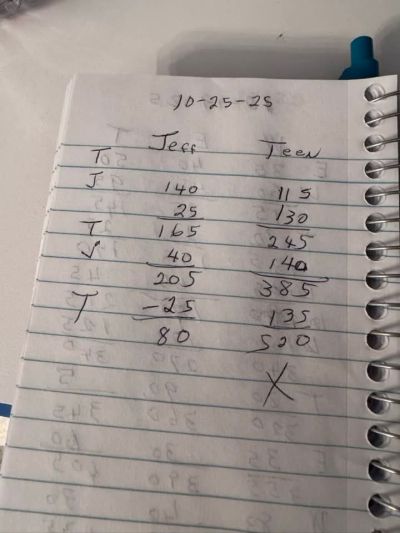 10-25-25
Jeff Teen
T
J 140 115
25 130
T 165 245
J 40 140
205 385
T -25 135
80 520
X